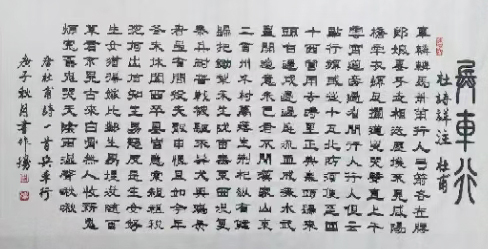 兵車行
杜詩詳注 杜甫
車轔轔馬蕭蕭行人弓箭各在腰
耶孃妻子走相送塵埃不見咸陽
橋牽衣頓足攔道哭哭聲直上干
雲霄道旁過者問行人行人但云
點行頻或從十五北防河便至四
十西營田去時里正與裹頭歸來
頭白還戍邊邊庭流血成海水武
皇開邊意未已君不聞漢家山東
二百州千村萬落生荊杞縱有健
婦把鋤犁禾生隴畝無東西況復
秦兵耐苦戰被驅不異犬與雞長
者雖有問役夫敢申恨且如今年
冬未休關西卒縣官急索租租稅
從何出信知生男惡反是生女好
生女猶得嫁比鄰生男埋沒隨百
草君不見古來白骨無人收新鬼
煩冤舊鬼哭天陰雨濕聲啾啾
唐杜甫詩一首兵車行
庚子秋月書於揚